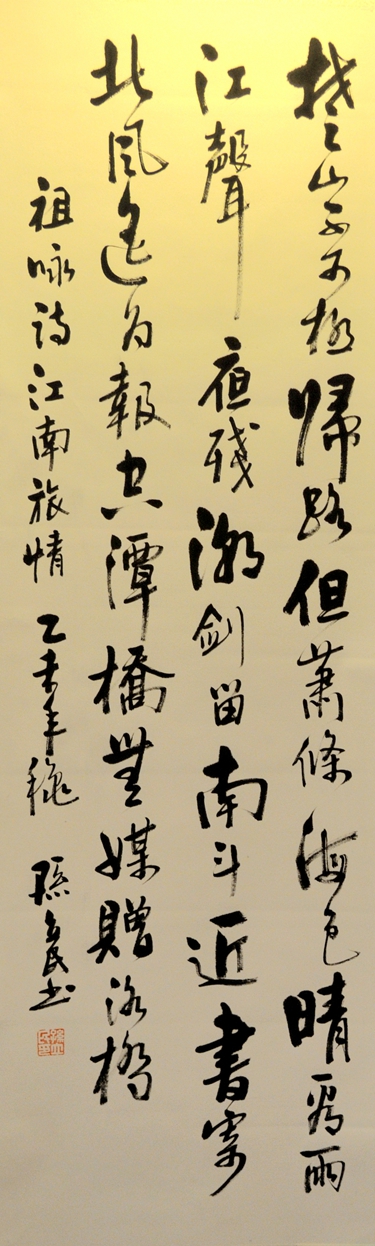 楚山不可極歸路但蕭條海色晴看雨
江聲夜殘潮劍留南斗近書寄
北風遙為報空潭橋無媒贈洛橋
祖咏詩江南旅情 乙未年穐 孫民書